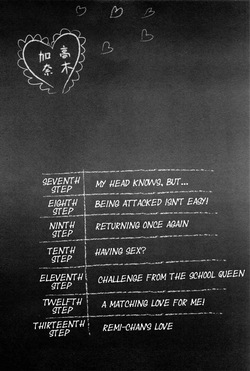 加奈
高木
SEVENTH STEP MY HEAD KNOWS, BUT...
EIGHTH STEP BEING ATTACKED ISN'T EASY!
NINTH STEP RETURNING ONCE AGAIN
TENTH STEP HAVING SEX?
ELEVENTH STEP CHALLENGE FROM THE SCHOOL QUEEN
TWELFTH STEP A MATCHING LOVE FOR ME!
THIRTEENTH STEP REMI-CHAN'S LOVE